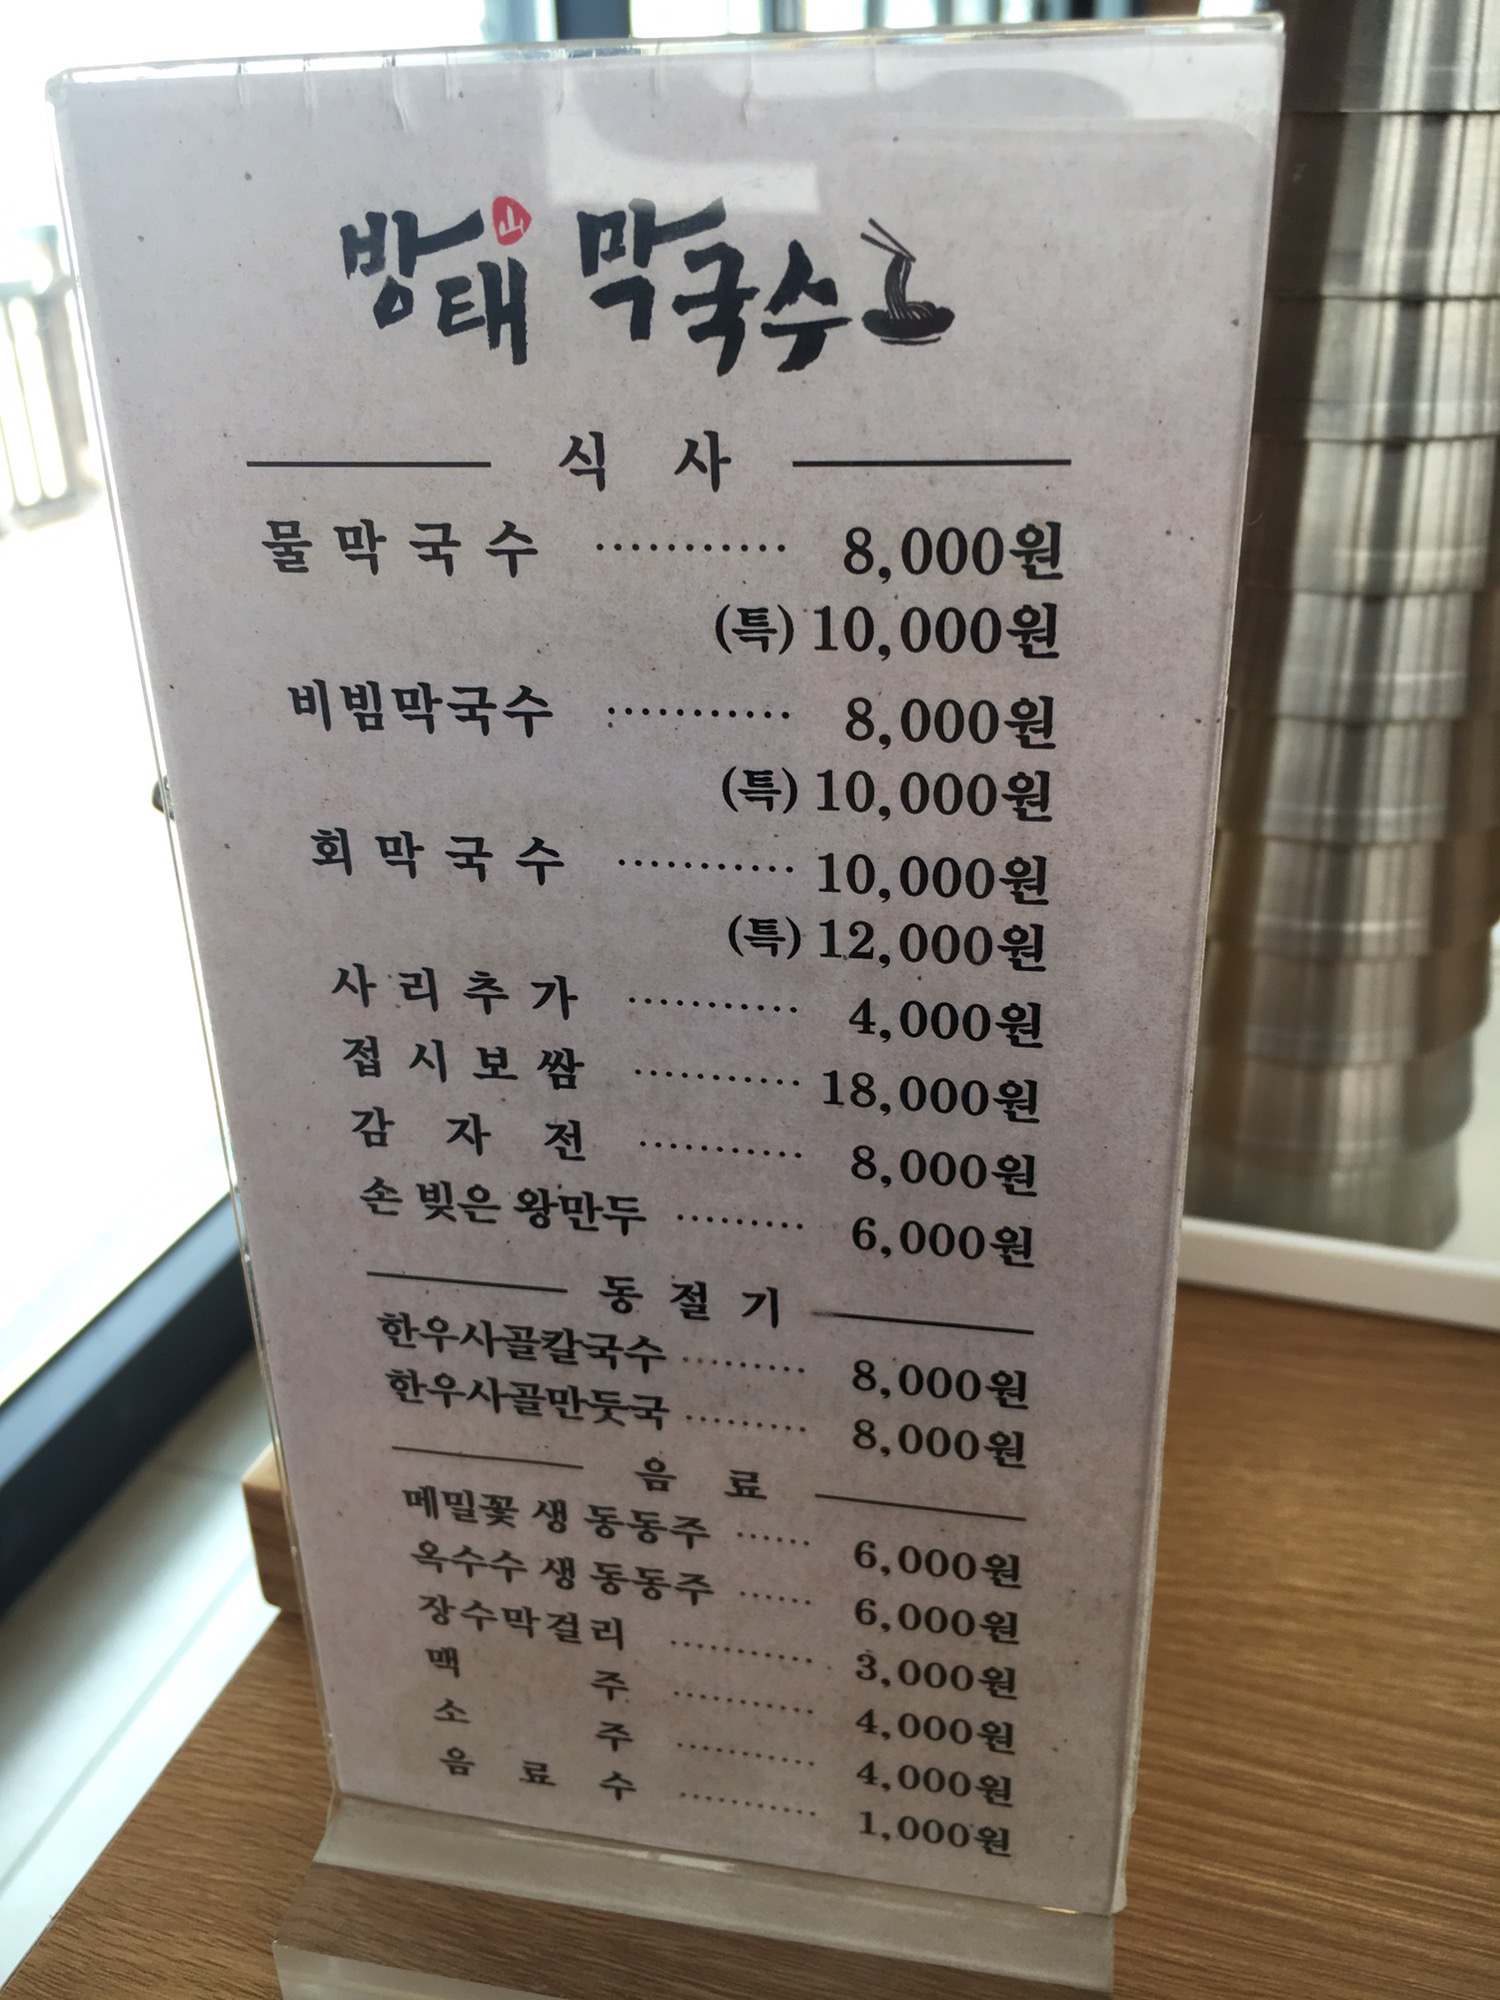 방태 山 막국수
식 사
물막국수 ··········· 8,000원
(특) 10,000원
비빔막국수 ··········· 8,000원
(특) 10,000원
회막국수 ··········· 10,000원
(특) 12,000원
사리추가 ··········· 4,000원
접시보쌈 ··········· 18,000원
감자전 ··········· 8,000원
손 빚은 왕만두 ········· 6,000원
동절기
한우사골칼국수 ········· 8,000원
한우사골만둣국 ········· 8,000원
음 료
메밀꽃 생 동동주 ······ 6,000원
옥수수 생 동동주 ······ 6,000원
장수막걸리 ··········· 3,000원
맥 주 ··········· 4,000원
소 주 ··········· 4,000원
음 료 수 ··········· 1,000원